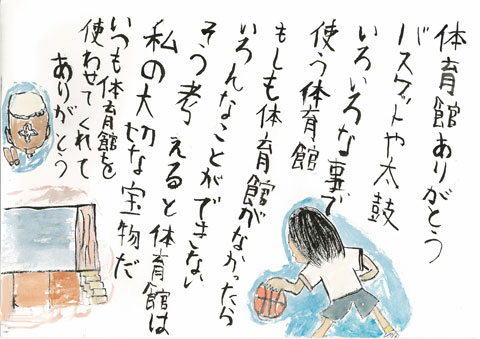 体育館ありがとう
バスケットや太鼓
いろいろな事で
使う体育館
もしも体育館がなかったら
いろんなことができない
そう考えると体育館は
私の大切な宝物だ
いつも体育館を
使わせてくれて
ありがとう